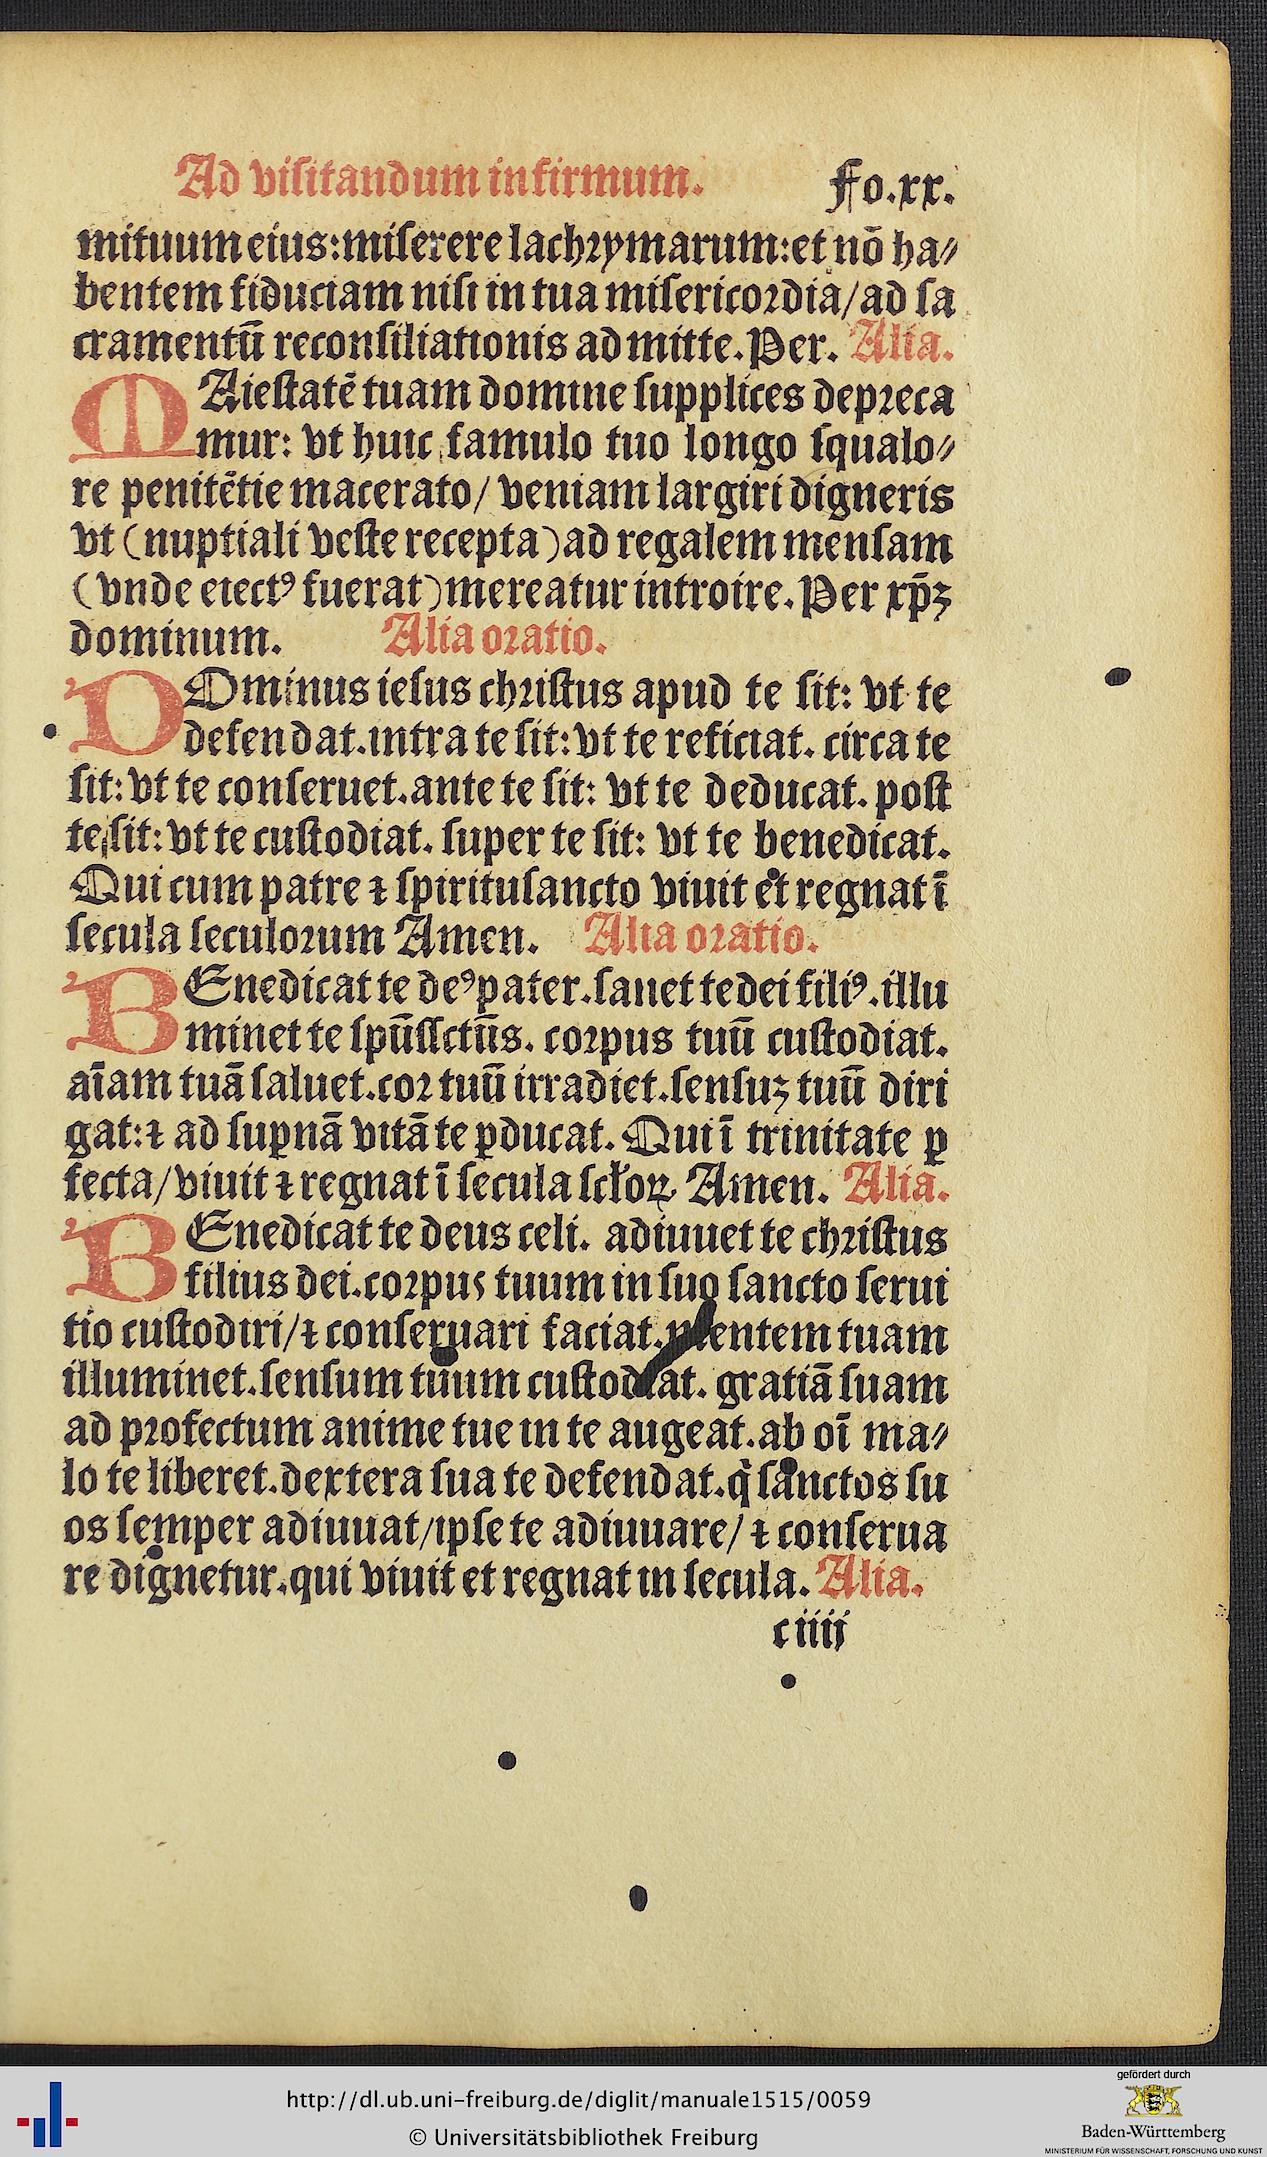 Ad visitandum infirmum. Fo.xx.
mituum eius:miserere lachrymarum:et nō ha⸗
bentem fiduciam nisi in tua misericordia/ad sa
cramentū reconsiliationis admitte. Per. Alia.
MAiestatē tuam domine supplices depreca
mur: vt huic famulo tuo longo squalo⸗
re penitētie macerato/ veniam largiri digneris
vt (nuptiali veste recepta) ad regalem mensam
(vnde eiectꝰ fuerat) mereatur introire. Per xp̄ꝫ
dominum. Alia oratio.
DOminus iesus christus apud te sit: vt te
defendat.intra te sit: vt te reficiat. circa te
sit: vt te conseruet.ante te sit: vt te deducat. post
te sit: vt te custodiat. super te sit: vt te benedicat.
Qui cum patre ⁊ spiritusancto viuit et regnat ī
secula seculorum Amen. Alia oratio.
BEnedicat te deꝰ pater.sanet te dei filiꝰ.illu
minet te spūssctūs. corpus tuū custodiat.
aīam tuā saluet.cor tuū irradiet.sensuꝫ tuū diri
gat:⁊ ad suꝑnā vitā te ꝑducat. Qui ī trinitate ꝑ
fecta/viuit ⁊ regnat ī secula scl'oꝝ Amen. Alia.
BEnedicat te deus celi. adiuuet te christus
filius dei.corpus tuum in suo sancto serui
tio custodiri/⁊ conseruari faciat.mentem tuam
illuminet.sensum tuum custodiat. gratiā suam
ad profectum anime tue in te augeat.ab oī ma⸗
lo te liberet.dextera sua te defendat.q̇ sanctos su
os semper adiuuat/ipse te adiuuare/ ⁊ conserua
re dignetur.qui viuit et regnat in secula. Alia.
c iiij
http://dl.ub.uni-freiburg.de/diglit/manuale1515/0059
© Universitätsbibliothek Freiburg
gefördert durch
Baden-Württemberg
MINISTERIUM FÜR WISSENSCHAFT, FORSCHUNG UND KUNST